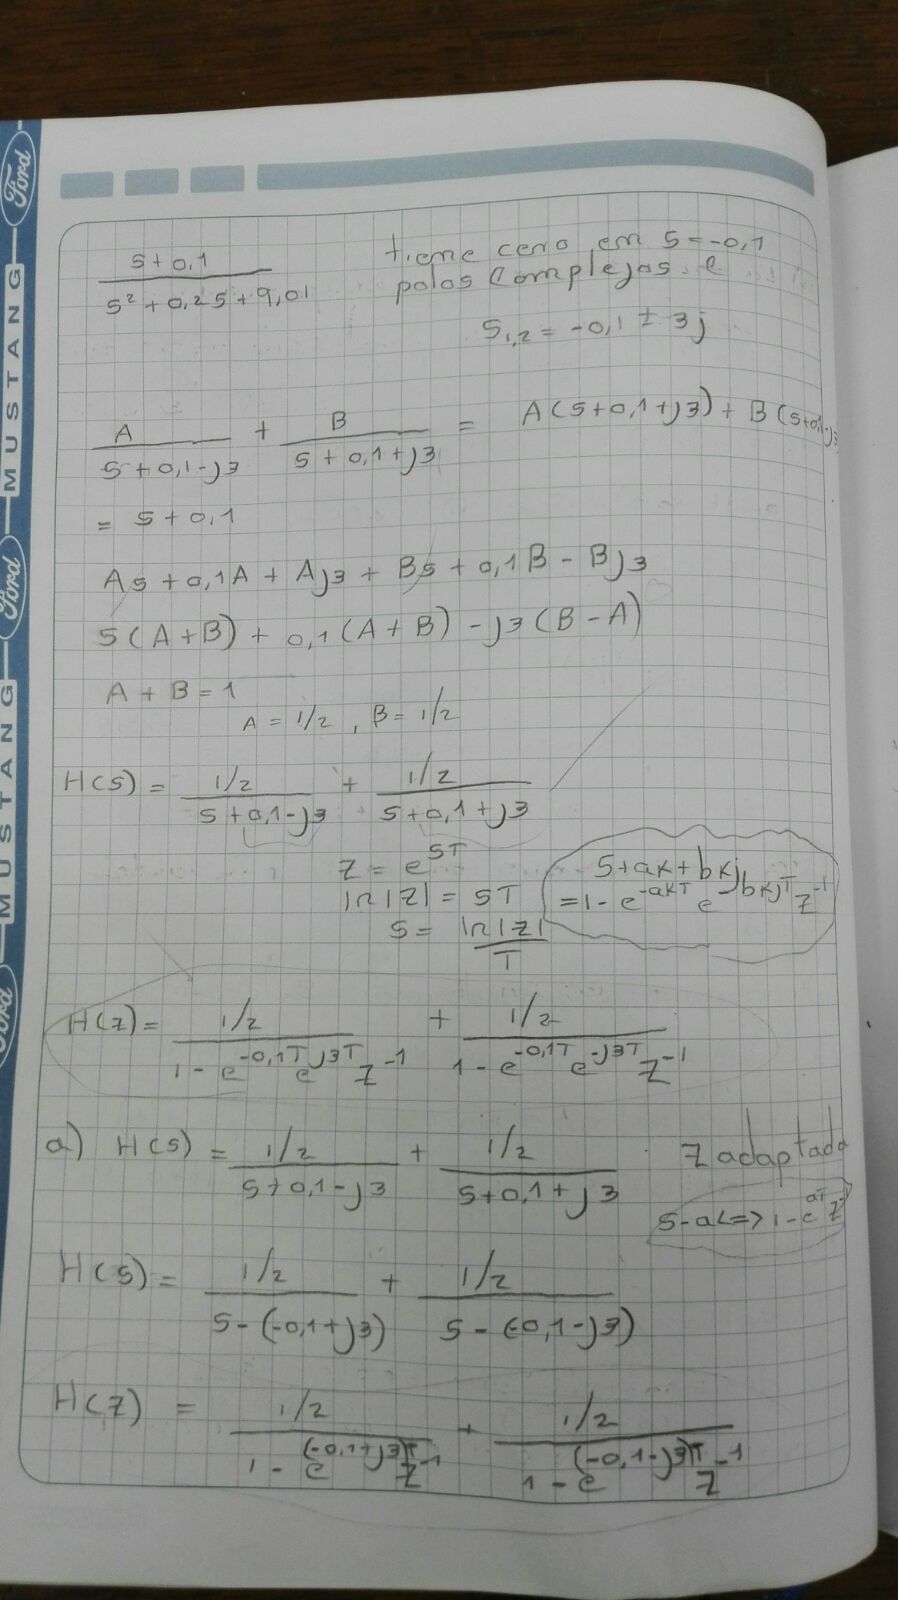 s+0,1 / s² + 0,2s + 9,01
tiene cero en s = -0,1
polos complejos
s₁,₂ = -0,1 ± 3j
A / (s+0,1-j3) + B / (s+0,1+j3) = A(s+0,1+j3) + B(s+0,1-j3
= s+0,1
As + 0,1A + Aj3 + Bs + 0,1B - Bj3
s(A+B) + 0,1(A+B) - j3(B-A)
A + B = 1
A = 1/2 , B = 1/2
H(s) = 1/2 / (s+0,1-j3) + 1/2 / (s+0,1+j3)
z = e^sT
ln|z| = sT
s = ln|z| / T
s+ak+bkj
= 1 - e^-akT e^-bkjT z^-1
H(z) = 1/2 / (1 - e^-0,1T e^j3T z^-1) + 1/2 / (1 - e^-0,1T e^-j3T z^-1)
a) H(s) = 1/2 / (s+0,1-j3) + 1/2 / (s+0,1+j3)
z adaptada
s-a<=> 1-e^aT z^-
H(s) = 1/2 / (s-(-0,1+j3)) + 1/2 / (s-(-0,1-j3))
H(z) = 1/2 / (1 - e^(-0,1+j3)T z^-1) + 1/2 / (1 - e^(-0,1-j3)T z^-1)
Ford
MUSTANG
Ford
MUSTANG
Ford